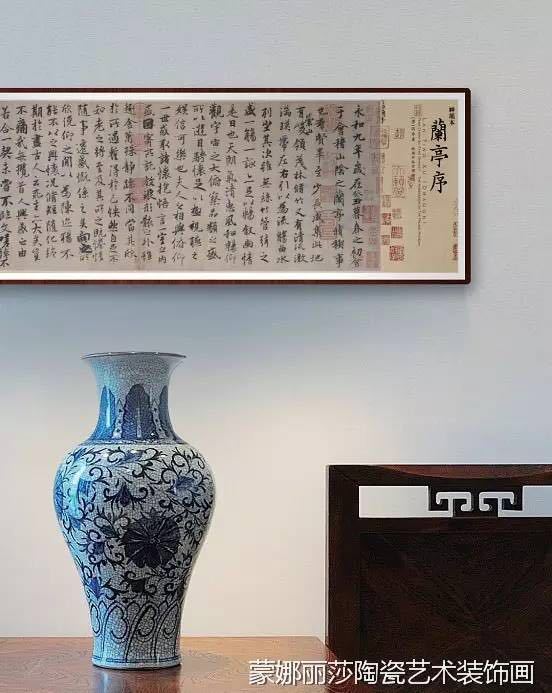 神龍本
蘭亭序
永和九年歲在癸丑暮春之初會
于會稽山陰之蘭亭脩稧事
也群賢畢至少長咸集此地
有崇山峻領茂林脩竹又有清流激
湍映帶左右引以為流觴曲水
列坐其次雖無絲竹管弦之
盛一觴一詠亦足以暢敘幽情
是日也天朗氣清惠風和暢仰
觀宇宙之大俯察品類之盛
所以遊目騁懷足以極視聽之
娛信可樂也夫人之相與俯仰
一世或取諸懷抱悟言一室之內
或因寄所託放浪形骸之外雖
趣舍萬殊靜躁不同當其欣
於所遇暫得於己怏然自足不
知老之將至及其所之既惓情
隨事遷感慨係之矣向之所
欣俛仰之間以為陳迹猶不
能不以之興懷況脩短隨化終
期於盡古人云死生亦大矣豈
不痛哉每攬昔人興感之由
若合一契未嘗不臨文嗟悼不
蒙娜丽莎陶瓷艺术装饰画